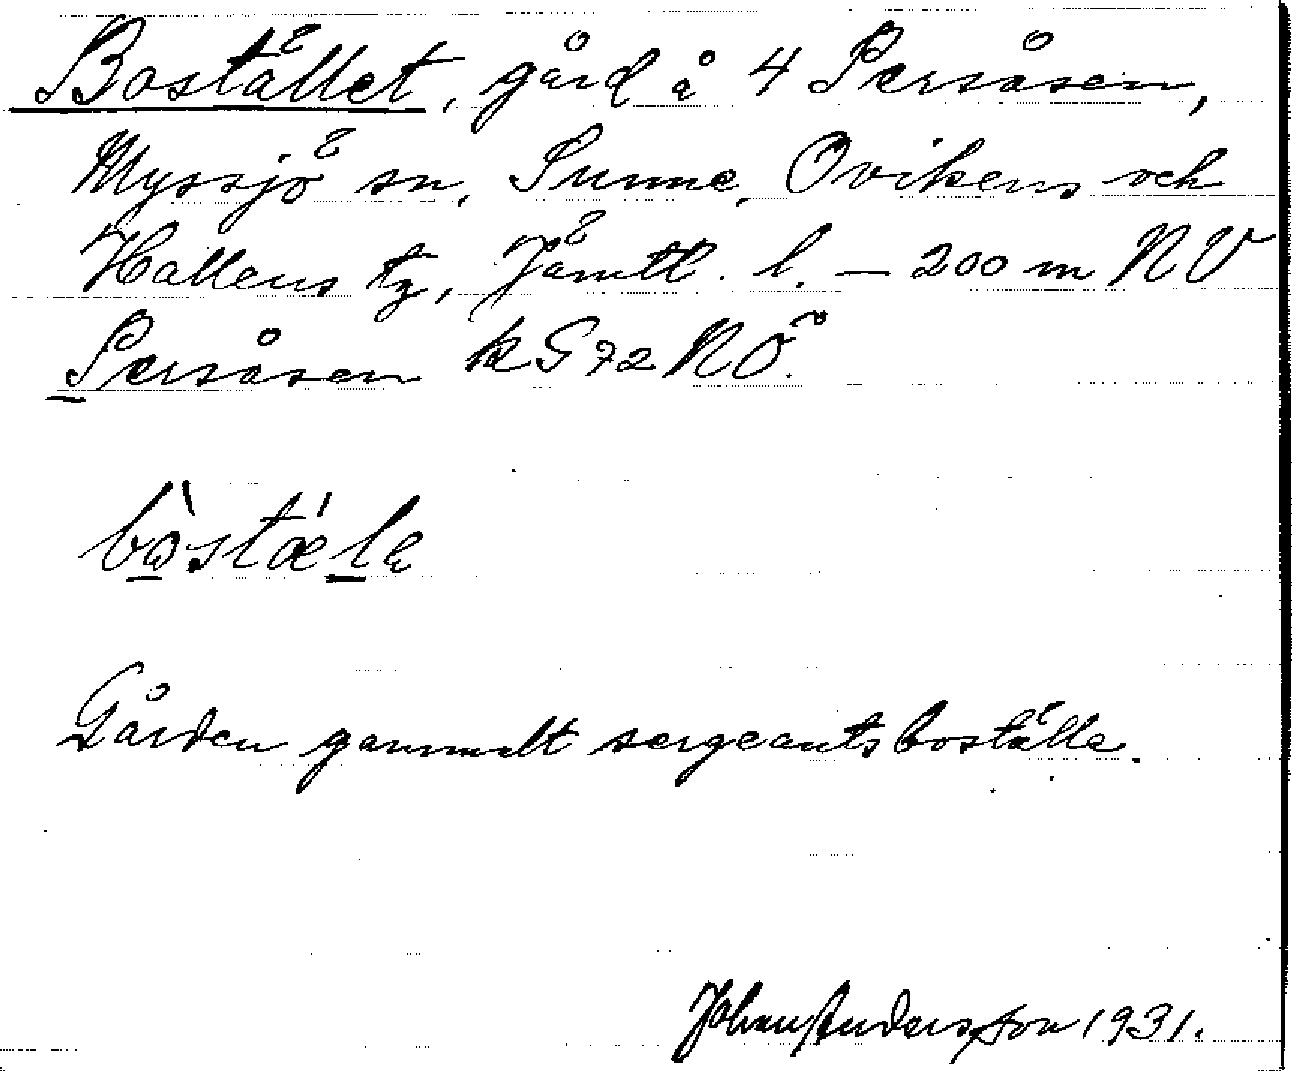 Bostället, gård å 4 Persåsen,
Myssjö sn, Sunne, Ovikens och
Hallens tg, Jämtl. l. — 200 m NV
Persåsen k G 72 NÖ.
bòstæ´lə
Gården gammalt sergeantsboställe.
Johan Andersson 1931.